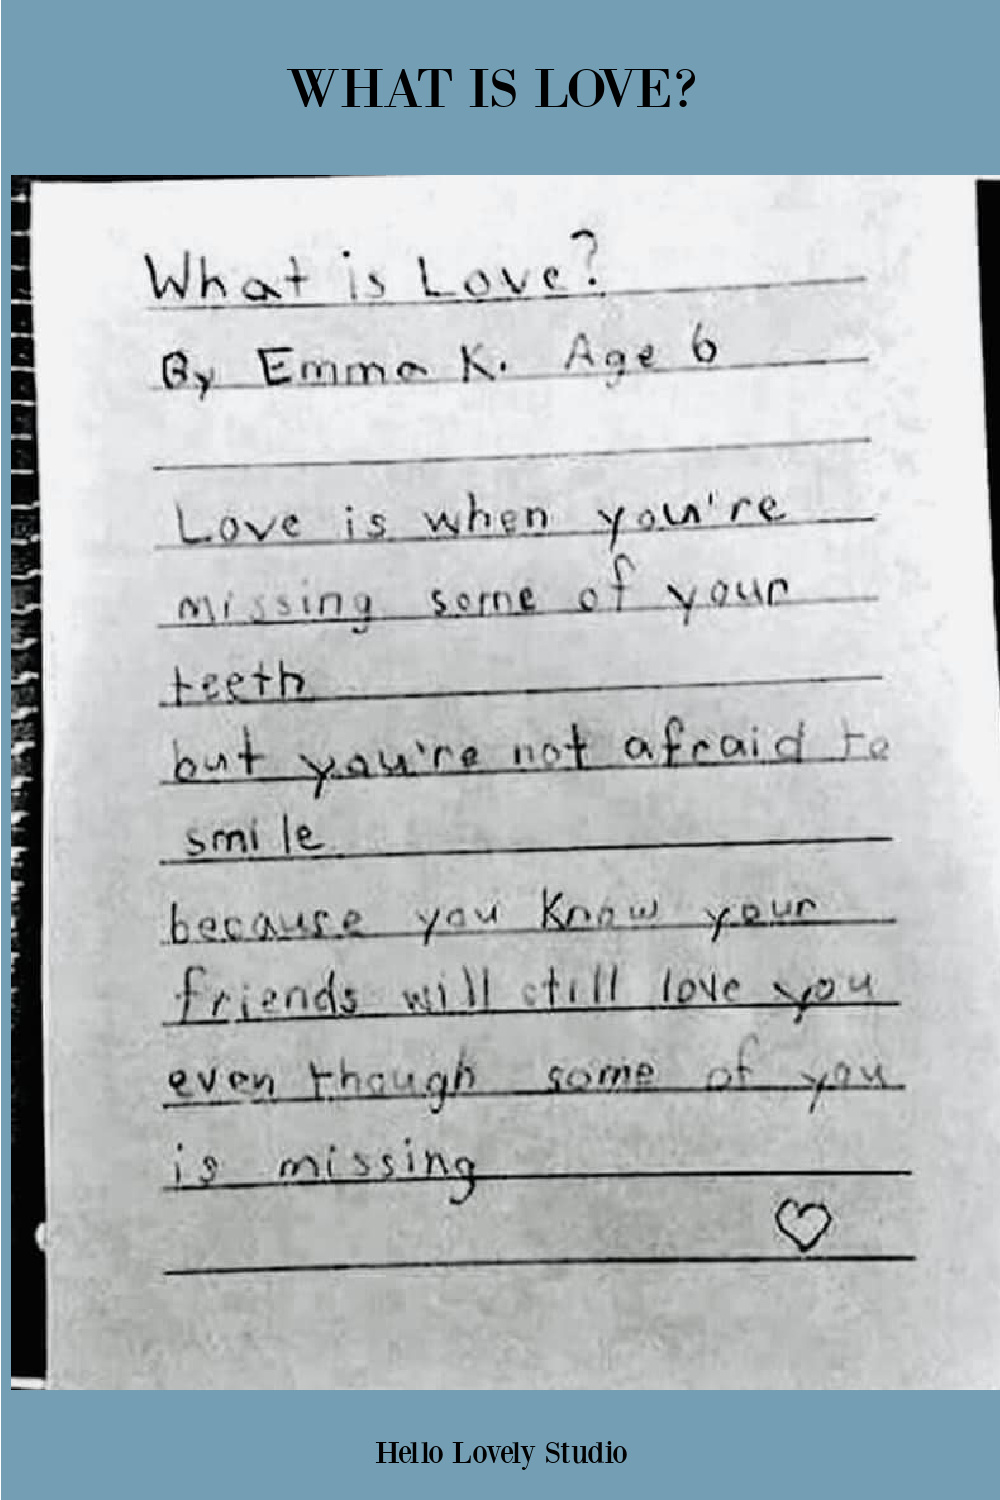 WHAT IS LOVE?
What is Love?
By Emma K. Age 6
Love is when you're
missing some of your
teeth
but you're not afraid to
smile
because you know your
friends will still love you
even though some of you
is missing
Hello Lovely Studio